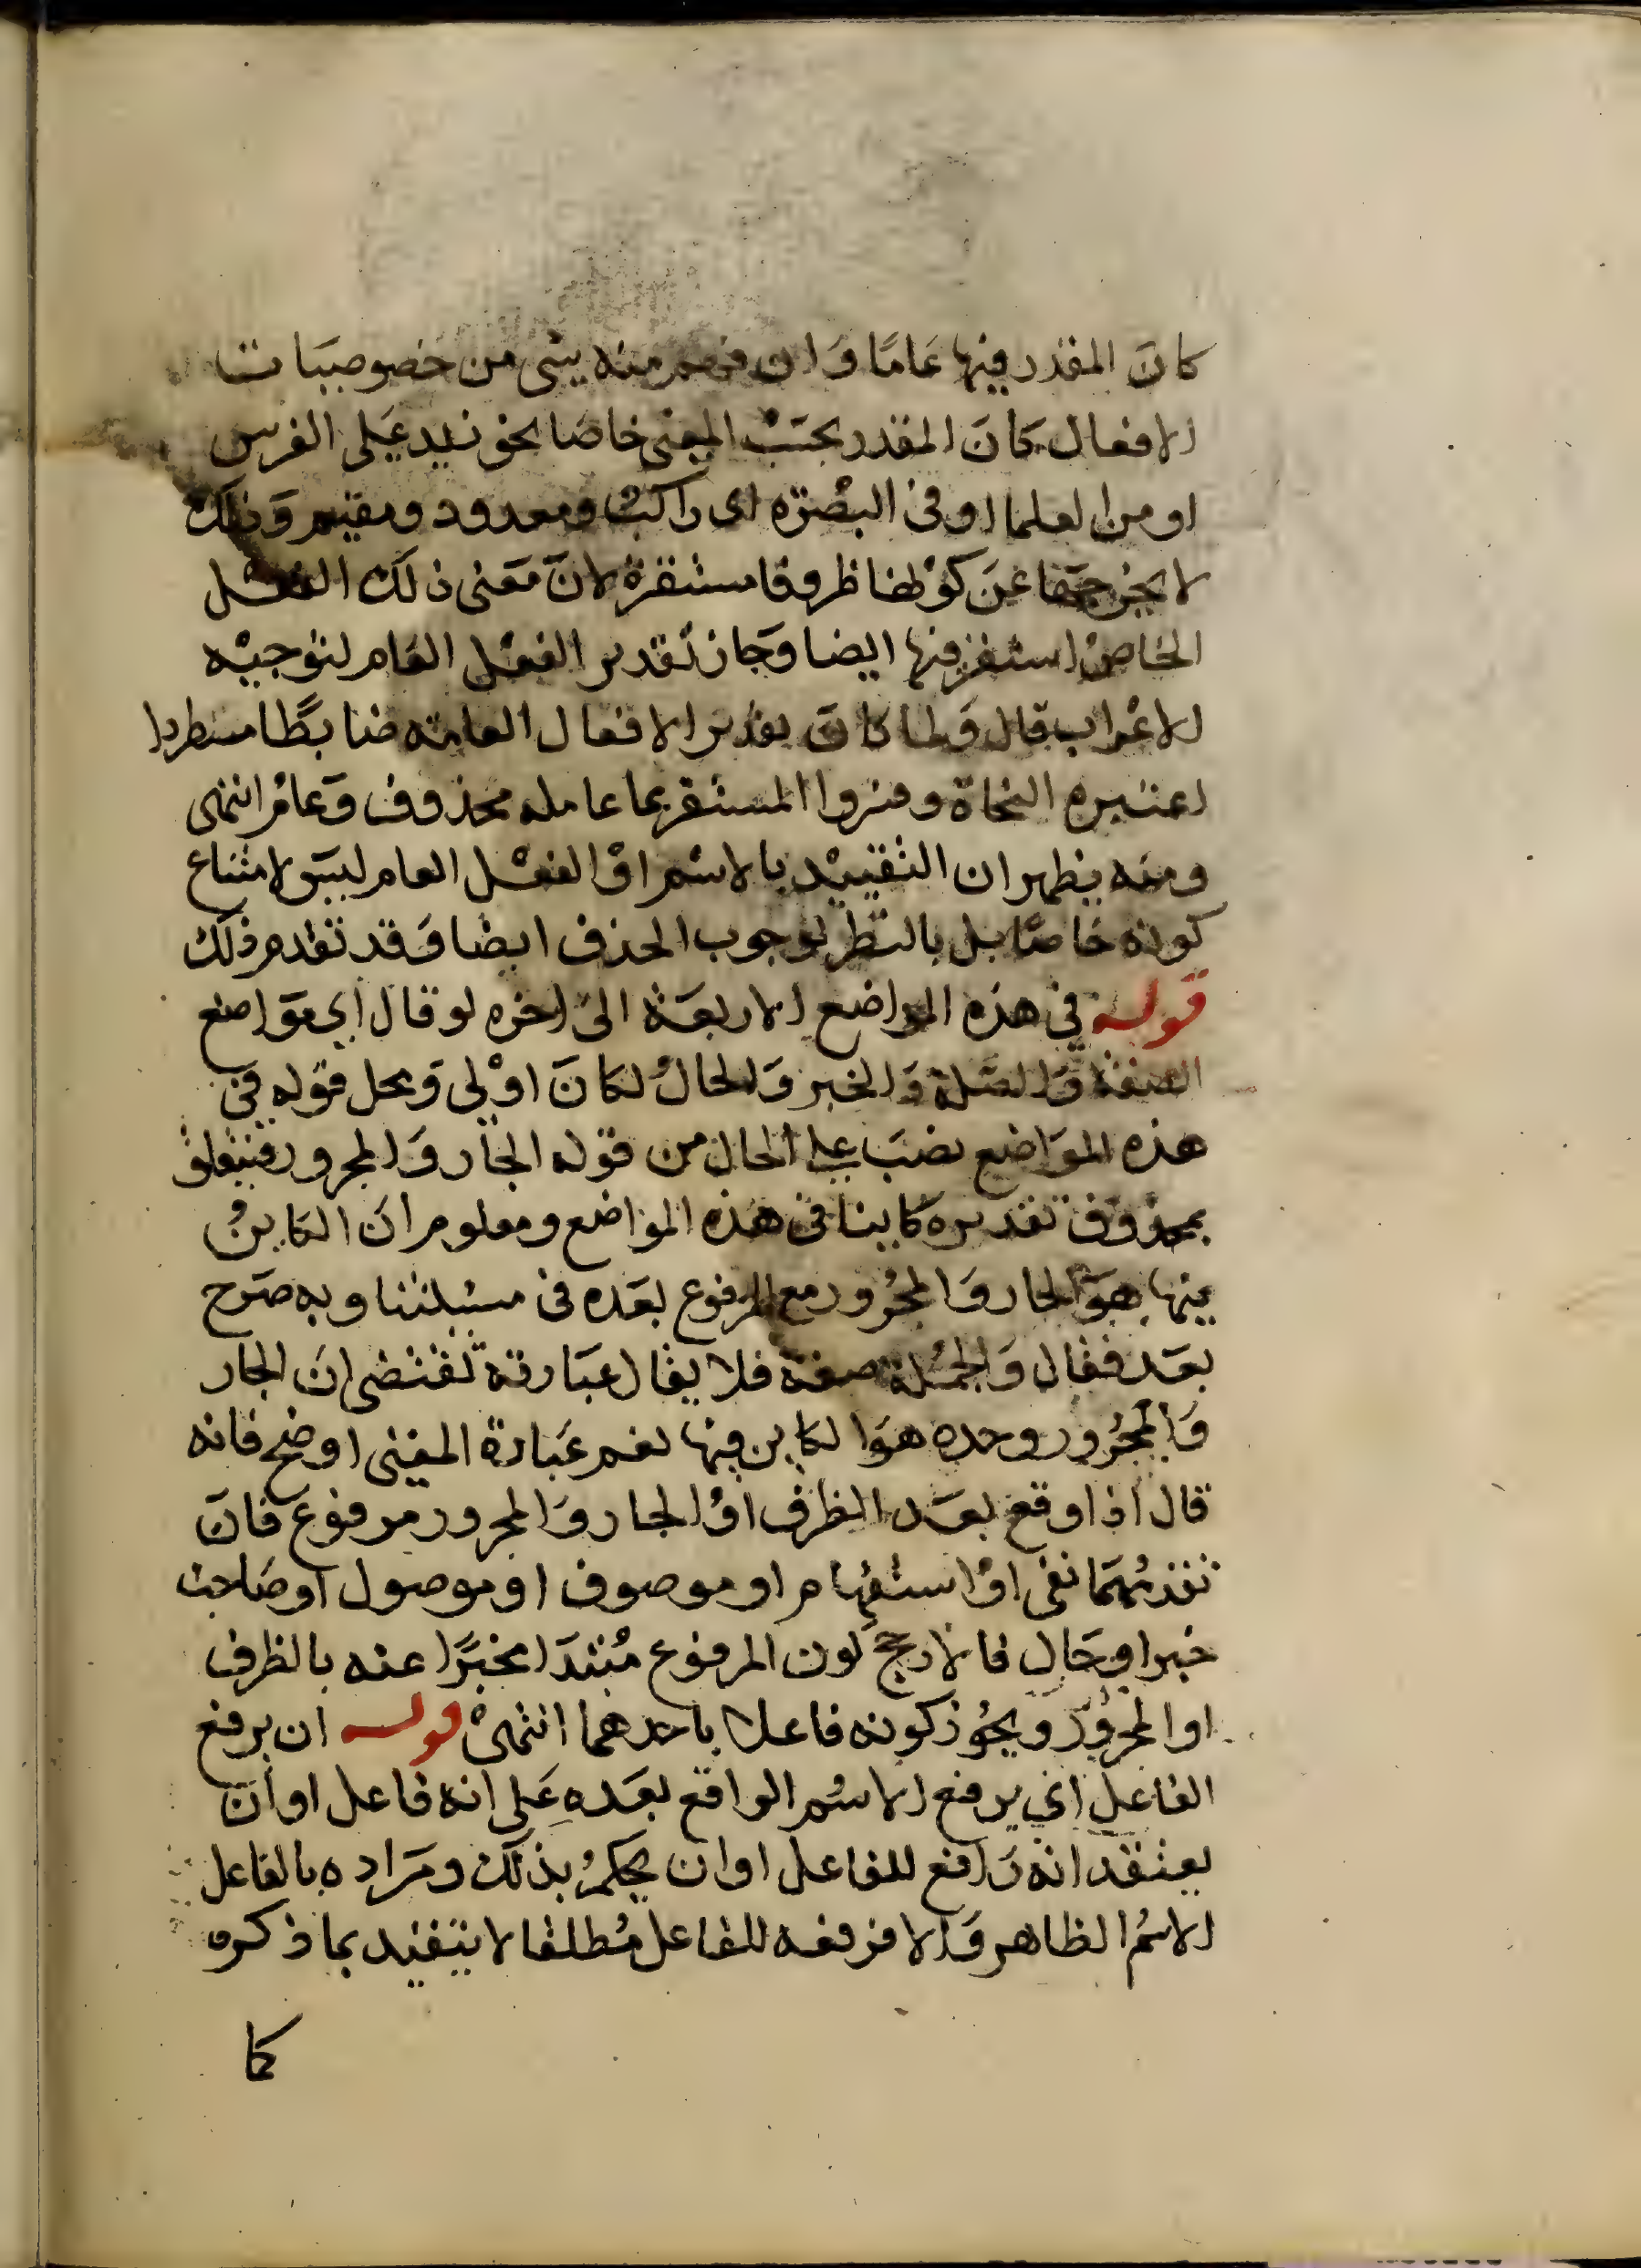 كان المقدر فيها عاما وان فهم منه شى من خصوصيات
الافعال كان المقدر بحسب المعنى خاصا نحو زيد على الفرس
او من العلما او فى البصرة اى راكب ومعدود ومقيم وذلك
لا يخرجها عن كونها ظروفا مستقرة لان معنى ذلك الفعل
الخاص استقر فيها ايضا وجاز تقدير الفعل العام لتوجيه
الاعراب قال ولما كان تقدير الافعال العامة ضابطا مطردا
اعتبره النحاة وفسروا المستقر بما عامله محذوف وعام انتهى
ومنه يظهر ان التقييد بالاسم او الفعل العام ليس لامتناع
كونه خاصا بل بالنظر لوجوب الحذف ايضا وقد تقدم ذلك
قوله فى هذه المواضع الاربعة الى اخره لو قال اى مواضع
الصفة والصلة والخبر والحال لكان اولى ومحل قوله فى
هذه المواضع نصب على الحال من قوله الجار والمجرور فيتعلق
بمحذوف تقديره كاينا فى هذه المواضع ومعلوم ان الكاين
فيها هو الجار والمجرور مع المرفوع بعده فى مسئلتنا وبه صرح
بعد فقال والجملة صفة فلا يقال عبارته تقتضى ان الجار
والمجرور وحده هو الكاين فيها نعم عبارة المغنى اوضح فانه
قال اذا وقع بعد الظرف او الجار والمجرور مرفوع فان
تقدمهما نفى او استفهام او موصوف او موصول او صاحب
خبر او حال فالارجح كون المرفوع مبتدا مخبرا عنه بالظرف
او المجرور ويجوز كونه فاعلا باحدهما انتهى قوله ان يرفع
الفاعل اى يرفع الاسم الواقع بعده على انه فاعل او ان
يعتقد انه رافع للفاعل او ان يحكم بذلك ومراده بالفاعل
الاسم الظاهر والا فرفعه للفاعل مطلقا لا يتقيد بما ذكره
كما